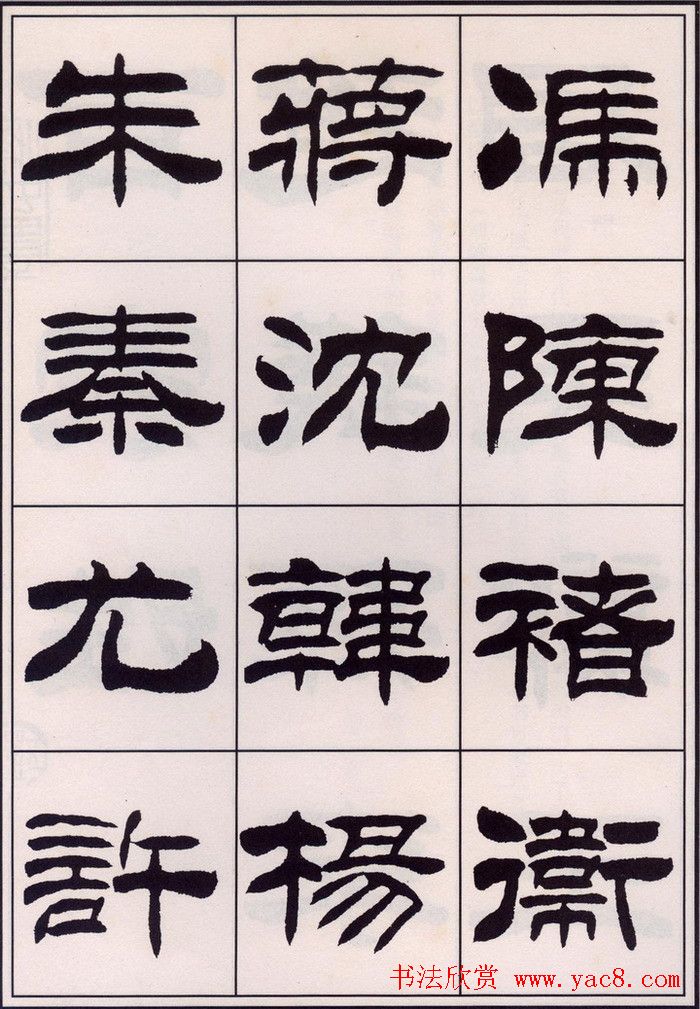 馮陳褚衛
蔣沈韓楊
朱秦尤許
书法欣赏 www.yac8.com